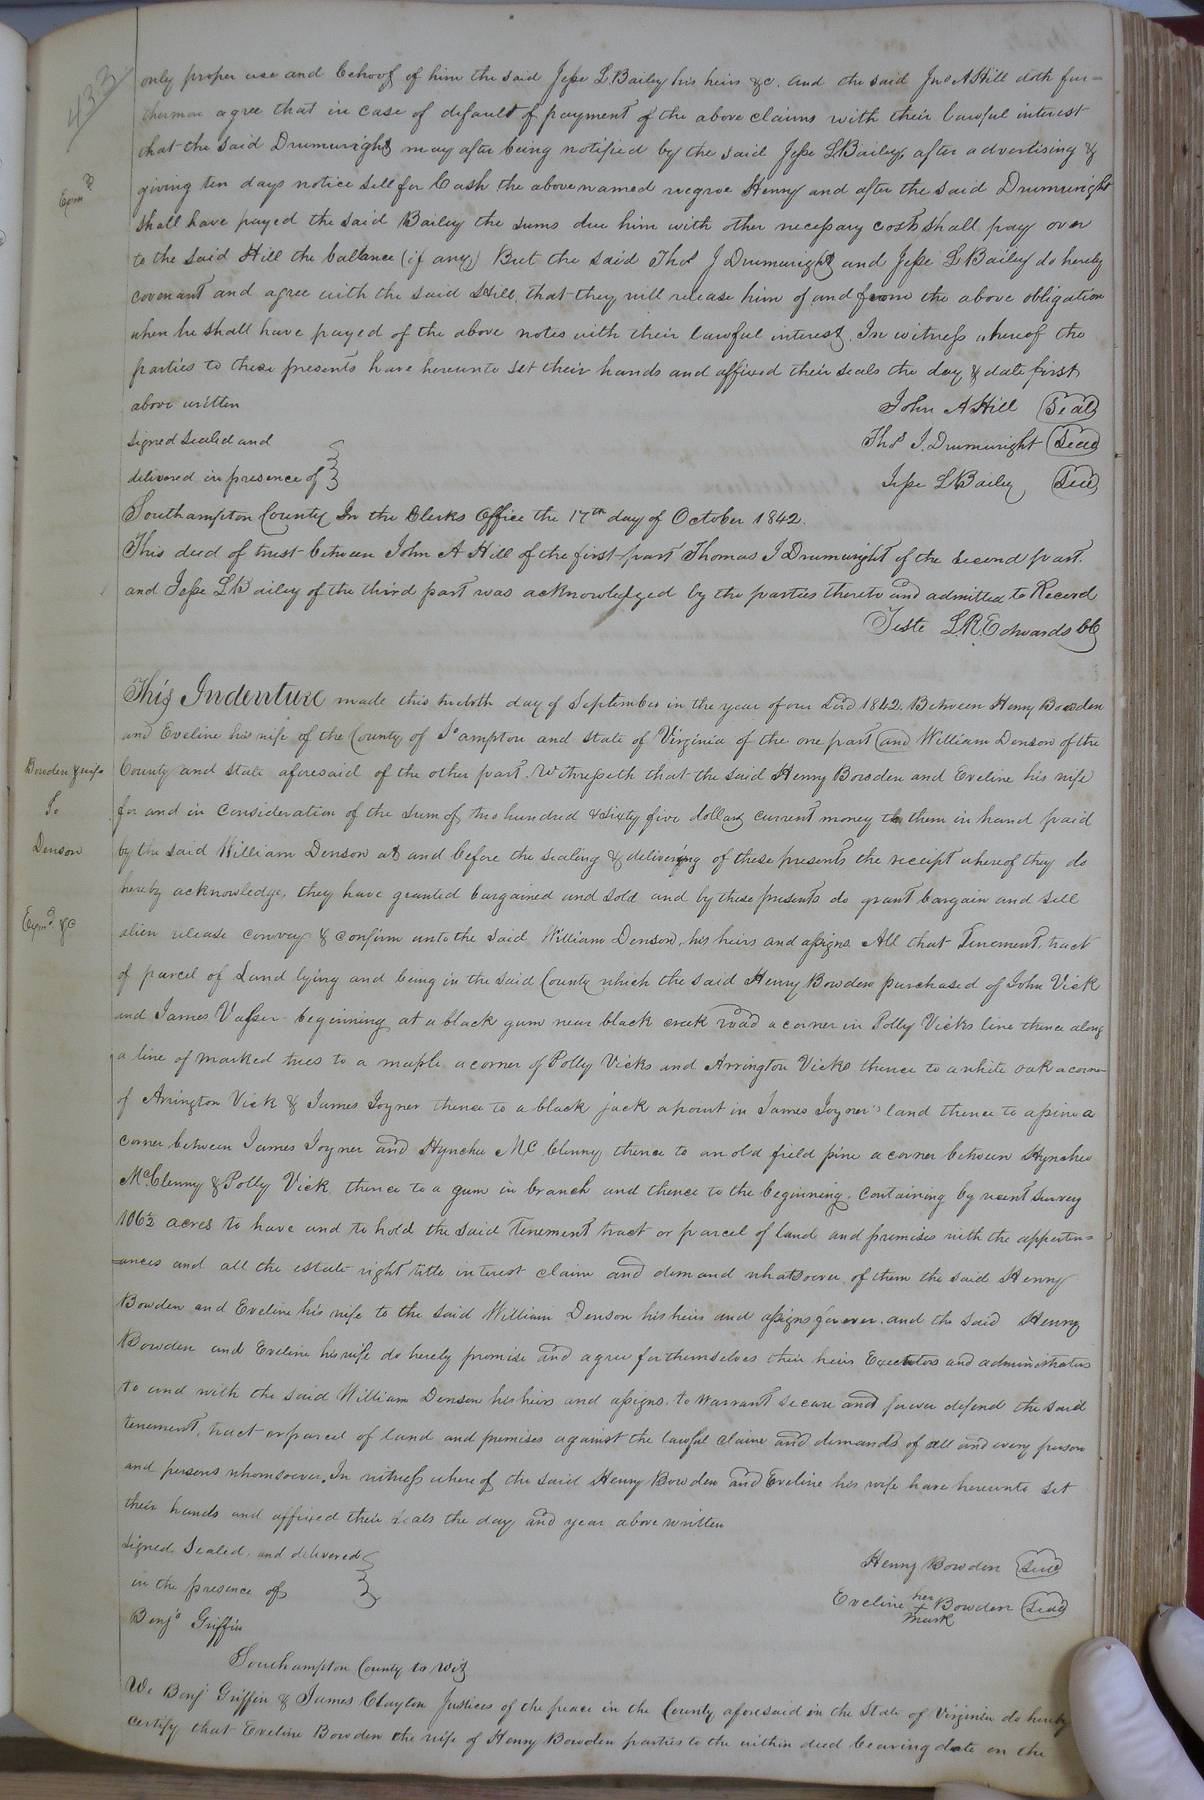 433
only proper use and behoof of him the said Jesse L. Bailey his heirs &c. and the said Jno A Hill doth fur=
thermore agree that in case of default of payment of the above claims with their lawful interest
that the said Drumwright may after being notified by the said Jesse L Bailey, after advertising &
Exmd
giving ten days notice sell for Cash the above named negroe Henry and after the said Drumwright
shall have payed the said Bailey the sums due him with other necessary cost shall pay over
to the said Hill the ballance (if any) But the said Thos J Drumwright and Jesse L Bailey do hereby
covenant and agree with the said Hill that they will release him of and from the above obligation
when he shall have payed of the above notes with their lawful interest. In witness whereof the
parties to these presents have hereunto set their hands and affixed their seals the day & date first
above written John A Hill (Seal)
signed sealed and Thos J. Drumwright (Seal)
delivered in presence of } Jesse L Bailey (Seal)
Southampton County In the Clerks Office the 17th day of October 1842.
This deed of trust between John A Hill of the first part Thomas J Drumwright of the second part
and Jesse L Bailey of the third part was acknowledged by the parties thereto and admitted to Record
Teste L.R. Edwards CC
This Indenture made this twelvth day of September in the year of our Lord 1842. Between Henry Bowden
and Eveline his wife of the County of S.ampton and state of Virginia of the one part and William Denson of the
Bowden & wife
To
Denson
Exmd &c
County and state aforesaid of the other part. Witnesseth that the said Henry Bowden and Eveline his wife
for and in consideration of the sum of two hundred & sixty five dollars current money to them in hand paid
by the said William Denson at and before the sealing & delivering of these presents the receipt whereof they do
hereby acknowledge, they have granted bargained and sold and by these presents do grant bargain and sell
alien release convey & confirm unto the said William Denson, his heirs and assigns All that Tenement, tract
of parcel of Land lying and being in the said County which the said Henry Bowden purchased of John Vick
and James Vasser beginning at a black gum near black creek road a corner in Polly Vicks line thence along
a line of marked trees to a maple a corner of Polly Vicks and Arrington Vicks thence to a white oak a corner
of Arrington Vick & James Joyner thence to a black jack a point in James Joyner's land thence to a pine a
corner between James Joyner and Hynchea McClenny thence to an old field pine a corner between Hynchea
McClenny & Polly Vick thence to a gum in branch and thence to the beginning. containing by recent survey
106½ acres to have and to hold the said Tenement tract or parcel of land and premises with the appertn=
=ances and all the estate right title interest claim and demand whatsoever of them the said Henry
Bowden and Eveline his wife to the said William Denson his heirs and assigns forever. and the said Henry
Bowden and Eveline his wife do hereby promise and agree for themselves their heirs Executors and administrators
to and with the said William Denson his heirs and assigns. to warrant secure and forever defend the said
tenement, tract or parcel of land and premises against the lawful claims and demands of all and every person
and persons whomsoever. In witness whereof the said Henry Bowden and Eveline his wife have hereunto set
their hands and affixed their seals the day and year above written
signed, sealed, and delivered } Henry Bowden (Seal)
in the presence of Eveline her + mark Bowden (Seal)
Benjn Griffin
Southampton County to Wit
We Benj Griffin & James Clayton Justices of the peace in the County aforesaid in the State of Virginia do hereby
certify that Eveline Bowden the wife of Henry Bowden parties to the within deed bearing date on the